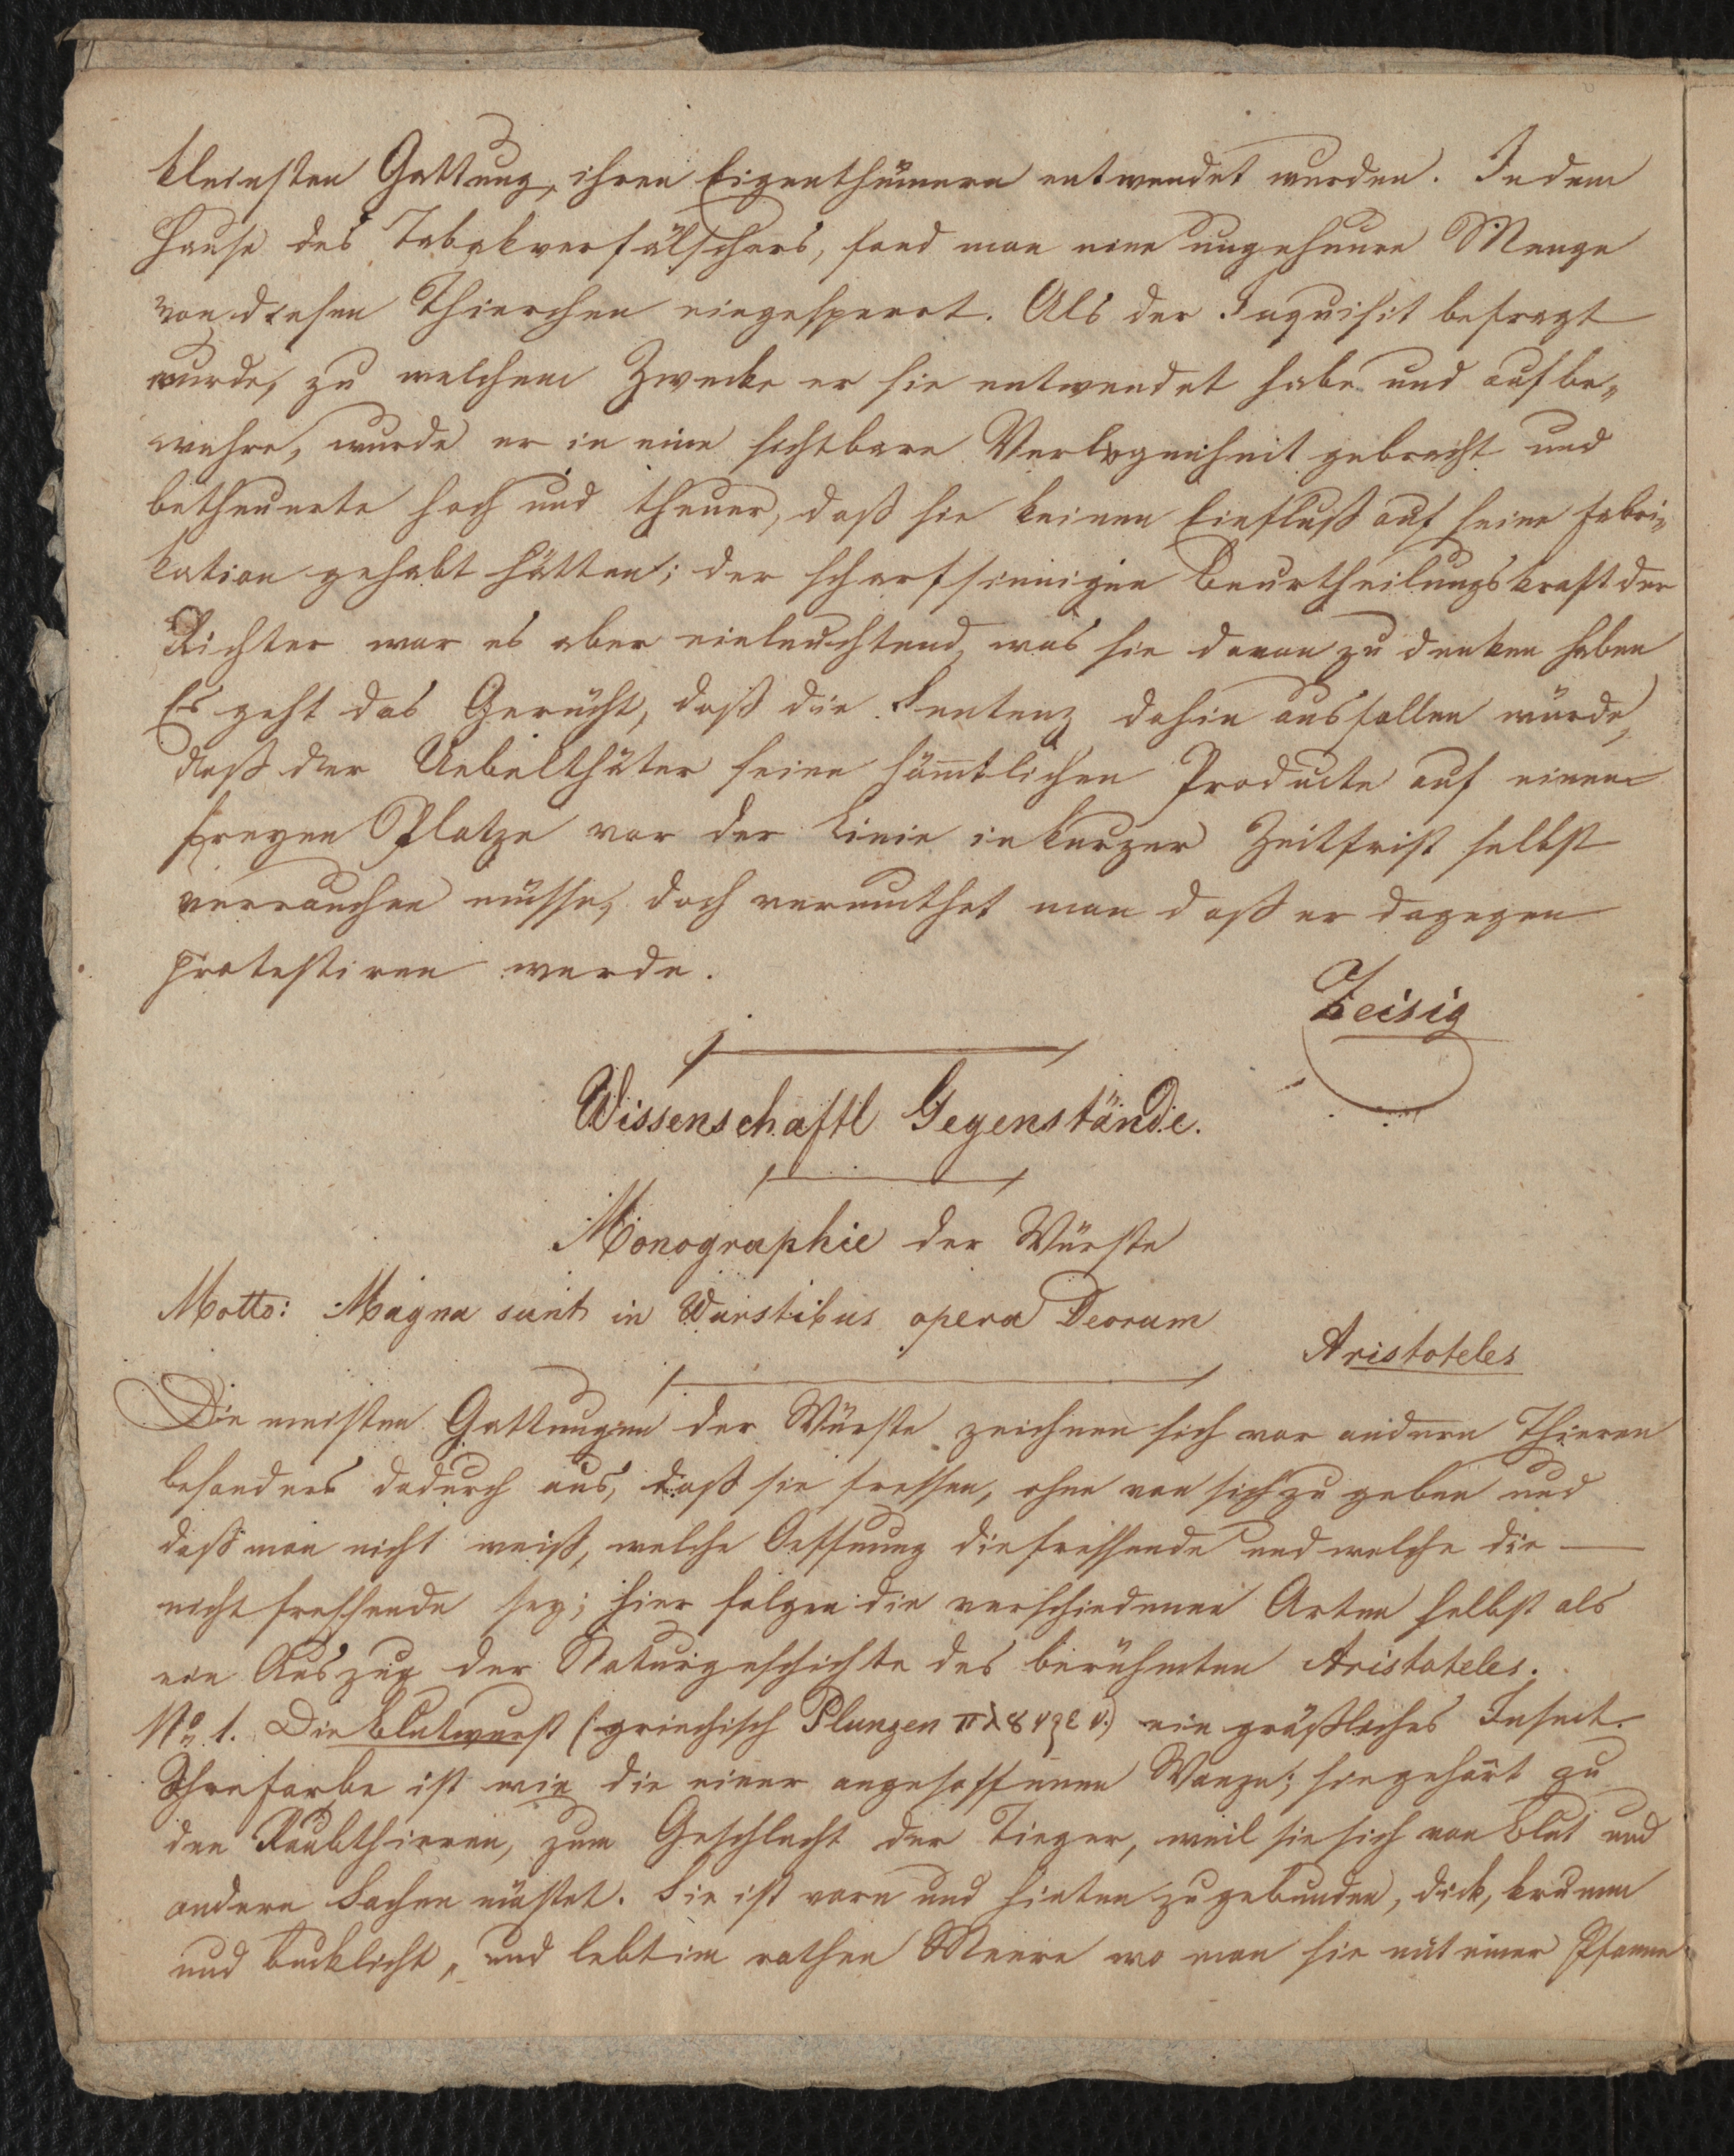 kleinsten Gattung, ihren Eigenthümern entwendet wurden. In dem
Hause des Tabakverfälschers, fand man eine ungeheuere Menge
von diesen Thierchen eingesperrt. Als der Inquisit befragt
wurde, zu welchem Zwecke er sie entwendet habe und aufbe„
wahre, wurde er in eine sichtbare Verlegenheit gebracht und
betheuerte hoch und theuer, daß sie keinen Einfluß auf seine Fabri„
kation gehabt hätten; der scharfsinnigen Beurtheilungskraft der
Richter war es aber einleuchtend, was sie davon zu denken haben
Es geht das Gerücht, daß die Sentenz dahin ausfallen würde,
daß der Uebelthäter seine sämtlichen Producte auf einem
freyen Platze vor der Linie in kurzer Zeitfrist selbst
verrauchen müsse, doch vermuthet man daß er dagegen
protestiren werde.
Zeisig
Wissenschaftl Gegenstände.
Monographie der Würste
Motto: Magna sunt in Wurstibus opera Deorum
Aristoteles
Die meisten Gattungen der Würste zeichnen sich vor andern Thieren
besonders dadurch aus, daß sie fressen, ohne von sich zu geben und
daß man nicht weiß, welche Oeffnung die fressende und welche die —
nicht fressende sey; hier folgen die verschiedenen Arten selbst als
ein Auszug der Naturgeschichte des berühmten Aristoteles.
No 1. Die Blutwurst (: griechisch Plunzen πλȣνζεν.) ein gräßliches Insect.
Ihre Farbe ist wie die einer angesoffenen Wanze; sie gehört zu
den Raubthieren, zum Geschlecht der Tieger, weil sie sich von Blut und
andern Sachen mästet. Sie ist vorn und hinten zugebunden, dick, krumm
und bucklicht, und lebt im rothen Meere wo man sie mit einer Pfanne